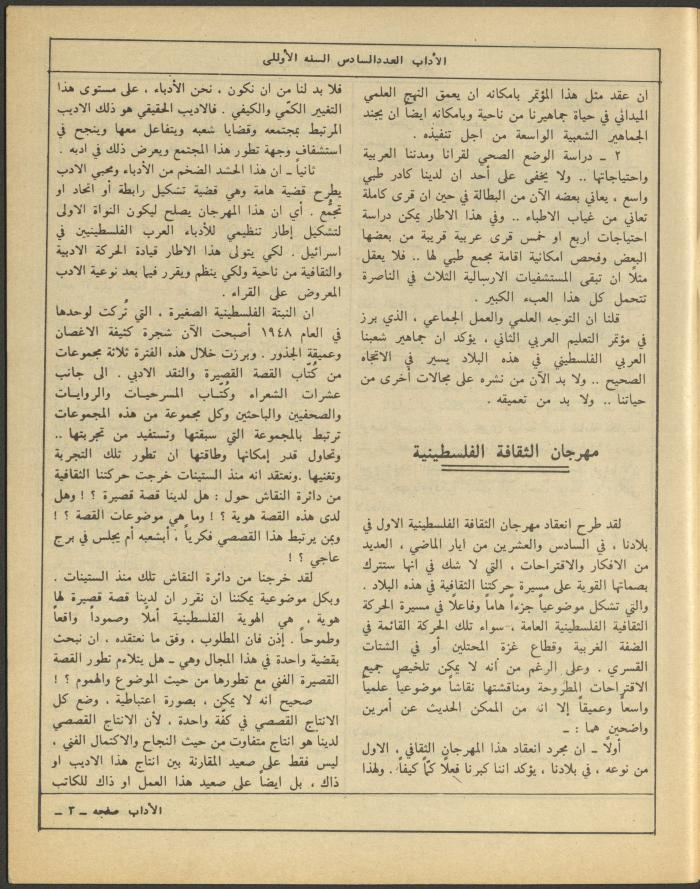 الأداب العدد السادس السنه الأوللى
ان عقد مثل هذا المؤتمر بامكانه ان يعمق النهج العلمي
الميداني في حياة جماهيرنا من ناحية وبامكانه ايضاً ان يجند
الجماهير الشعبية الواسعة من اجل تنفيذه .
٢ ـ دراسة الوضع الصحي لقرانا ومدننا العربية
واحتياجاتها .. ولا يخفى على أحد ان لدينا كادر طبي
واسع ، يعاني بعضه الآن من البطالة في حين ان قرى كاملة
تعاني من غياب الاطباء .. وفي هذا الاطار يمكن دراسة
احتياجات اربع او خمس قرى عربية قريبة من بعضها
البعض وفحص امكانية اقامة مجمع طبي لها .. فلا يعقل
مثلًا ان تبقى المستشفيات الارسالية الثلاث في الناصرة
تتحمل كل هذا العبء الكبير .
قلنا ان التوجه العلمي والعمل الجماعي ، الذي برز
في مؤتمر التعليم العربي الثاني ، يؤكد ان جماهير شعبنا
العربي الفلسطيني في هذه البلاد يسير في الاتجاه
الصحيح .. ولا بد الآن من نشره على مجالات أخرى من
حياتنا .. ولا بد من تعميقه .
مهرجان الثقافة الفلسطينية
لقد طرح انعقاد مهرجان الثقافة الفلسطينية الاول في
بلادنا ، في السادس والعشرين من ايار الماضي ، العديد
من الافكار والاقتراحات ، التي لا شك في انها ستترك
بصماتها القوية على مسيرة حركتنا الثقافية في هذه البلاد .
والتي تشكل موضوعياً جزءاً هاماً وفاعلًا في مسيرة الحركة
الثقافية الفلسطينية العامة ، سواء تلك الحركة القائمة في
الضفة الغربية وقطاع غزة المحتلين أو في الشتات
القسري . وعلى الرغم من أنه لا يمكن تلخيص جميع
الاقتراحات المطروحة ومناقشتها نقاشاً موضوعياً علمياً
واسعاً وعميقاً إلا انه من الممكن الحديث عن أمرين
واضحين هما : ـ
أولًا ـ ان مجرد انعقاد هذا المهرجان الثقافي ، الاول
من نوعه ، في بلادنا ، يؤكد اننا كبرنا فعلًا كمّاً كيفاً . ولهذا
فلا بد لنا من ان نكون ، نحن الأدباء ، على مستوى هذا
التغيير الكمّي والكيفي . فالاديب الحقيقي هو ذلك الاديب
المرتبط بمجتمعه وقضايا شعبه ويتفاعل معها وينجح في
استشفاف وجهة تطور هذا المجتمع ويعرض ذلك في ادبه .
ثانياً ـ ان هذا الحشد الضخم من الأدباء ومحبي الادب
يطرح قضية هامة وهي قضية تشكيل رابطة أو اتحاد او
تجمُّع . أي ان هذا المهرجان يصلح ليكون النواة الاولى
لتشكيل إطار تنظيمي للأدباء العرب الفلسطينيين في
اسرائيل . لكي يتولى هذا الاطار قيادة الحركة الادبية
والثقافية من ناحية ولكي ينظم ويقرر فيما بعد نوعية الادب
المعروض على القراء .
ان النبتة الفلسطينية الصغيرة ، التي تُركت لوحدها
في العام ١٩٤٨ أصبحت الآن شجرة كثيفة الاغصان
وعميقة الجذور . وبرزت خلال هذه الفترة ثلاثة مجموعات
من كُتّاب القصة القصيرة والنقد الادبي . الى جانب
عشرات الشعراء وكُتّاب المسرحيات والروايات
والصحفيين والباحثين وكل مجموعة من هذه المجموعات
ترتبط بالمجموعة التي سبقتها وتستفيد من تجربتها ..
وتحاول قدر إمكانها وطاقتها ان تطور تلك التجربة
وتغنيها .ونعتقد انه منذ الستينات خرجت حركتنا الثقافية
من دائرة النقاش حول : هل لدينا قصة قصيرة ؟ ! وهل
لدى هذه القصة هوية ؟ ! وما هي موضوعات القصة ؟ !
وبمن يرتبط هذا القصصي فكرياً ، أبشعبه أم يجلس في برج
عاجي ؟ !
لقد خرجنا من دائرة النقاش تلك منذ الستينات .
وبكل موضوعية يمكننا ان نقرر ان لدينا قصة قصيرة لها
هوية ، هي الهوية الفلسطينية أملًا وصموداً واقعاً
وطموحاً . إذن فان المطلوب ، وفق ما نعتقده ، ان نبحث
بقضية واحدة في هذا المجال وهي ـ هل يتلاءم تطور القصة
القصيرة الفني مع تطورها من حيث الموضوع والهموم ؟ !
صحيح انه لا يمكن ، بصورة اعتباطية ، وضع كل
الانتاج القصصي في كفّة واحدة ، لأن الانتاج القصصي
لدينا هو انتاج متفاوت من حيث النجاح والاكتمال الفني ،
ليس فقط على صعيد المقارنة بين انتاج هذا الاديب او
ذاك ، بل ايضاً على صعيد هذا العمل او ذاك للكاتب
الأداب صفحه ـ ٣ ـ